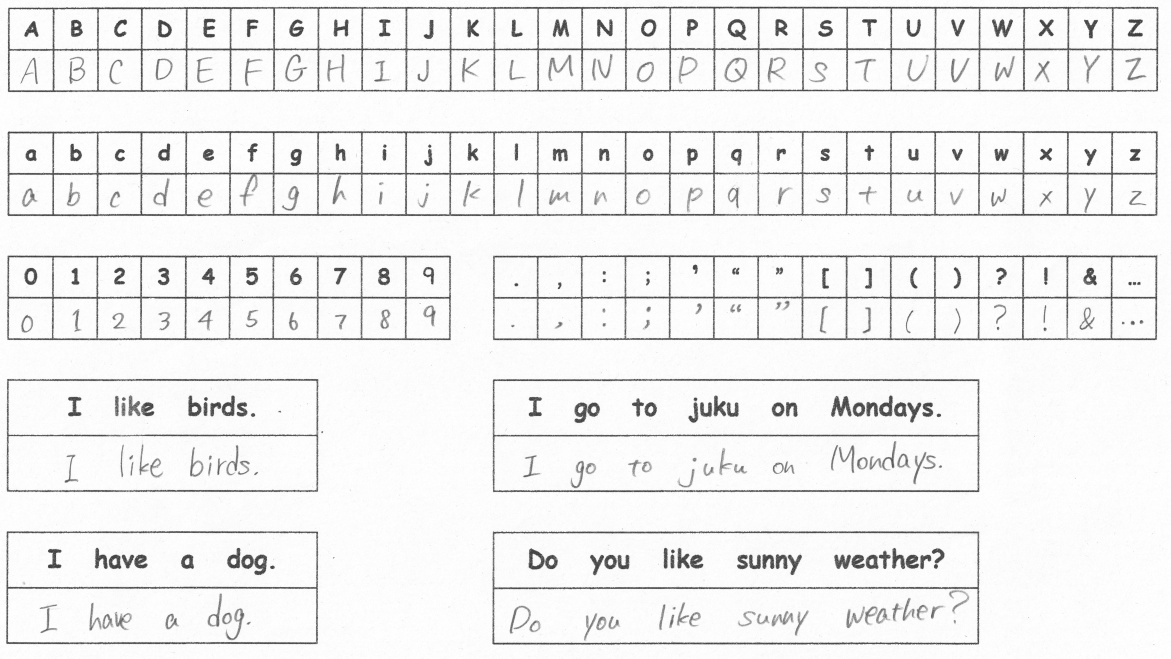 A B C D E F G H I J K L M N O P Q R S T U V W X Y Z
A B C D E F G H I J K L M N O P Q R S T U V W X Y Z
a b c d e f g h i j k l m n o p q r s t u v w x y z
a b c d e f g h i j k l m n o p q r s t u v w x y z
0 1 2 3 4 5 6 7 8 9
0 1 2 3 4 5 6 7 8 9
. , : ; ’ “ ” [ ] ( ) ? ! & …
. , : ; ’ “ ” [ ] ( ) ? ! & …
I like birds.
I like birds.
I go to juku on Mondays.
I go to juku on Mondays.
I have a dog.
I have a dog.
Do you like sunny weather?
Do you like sunny weather?